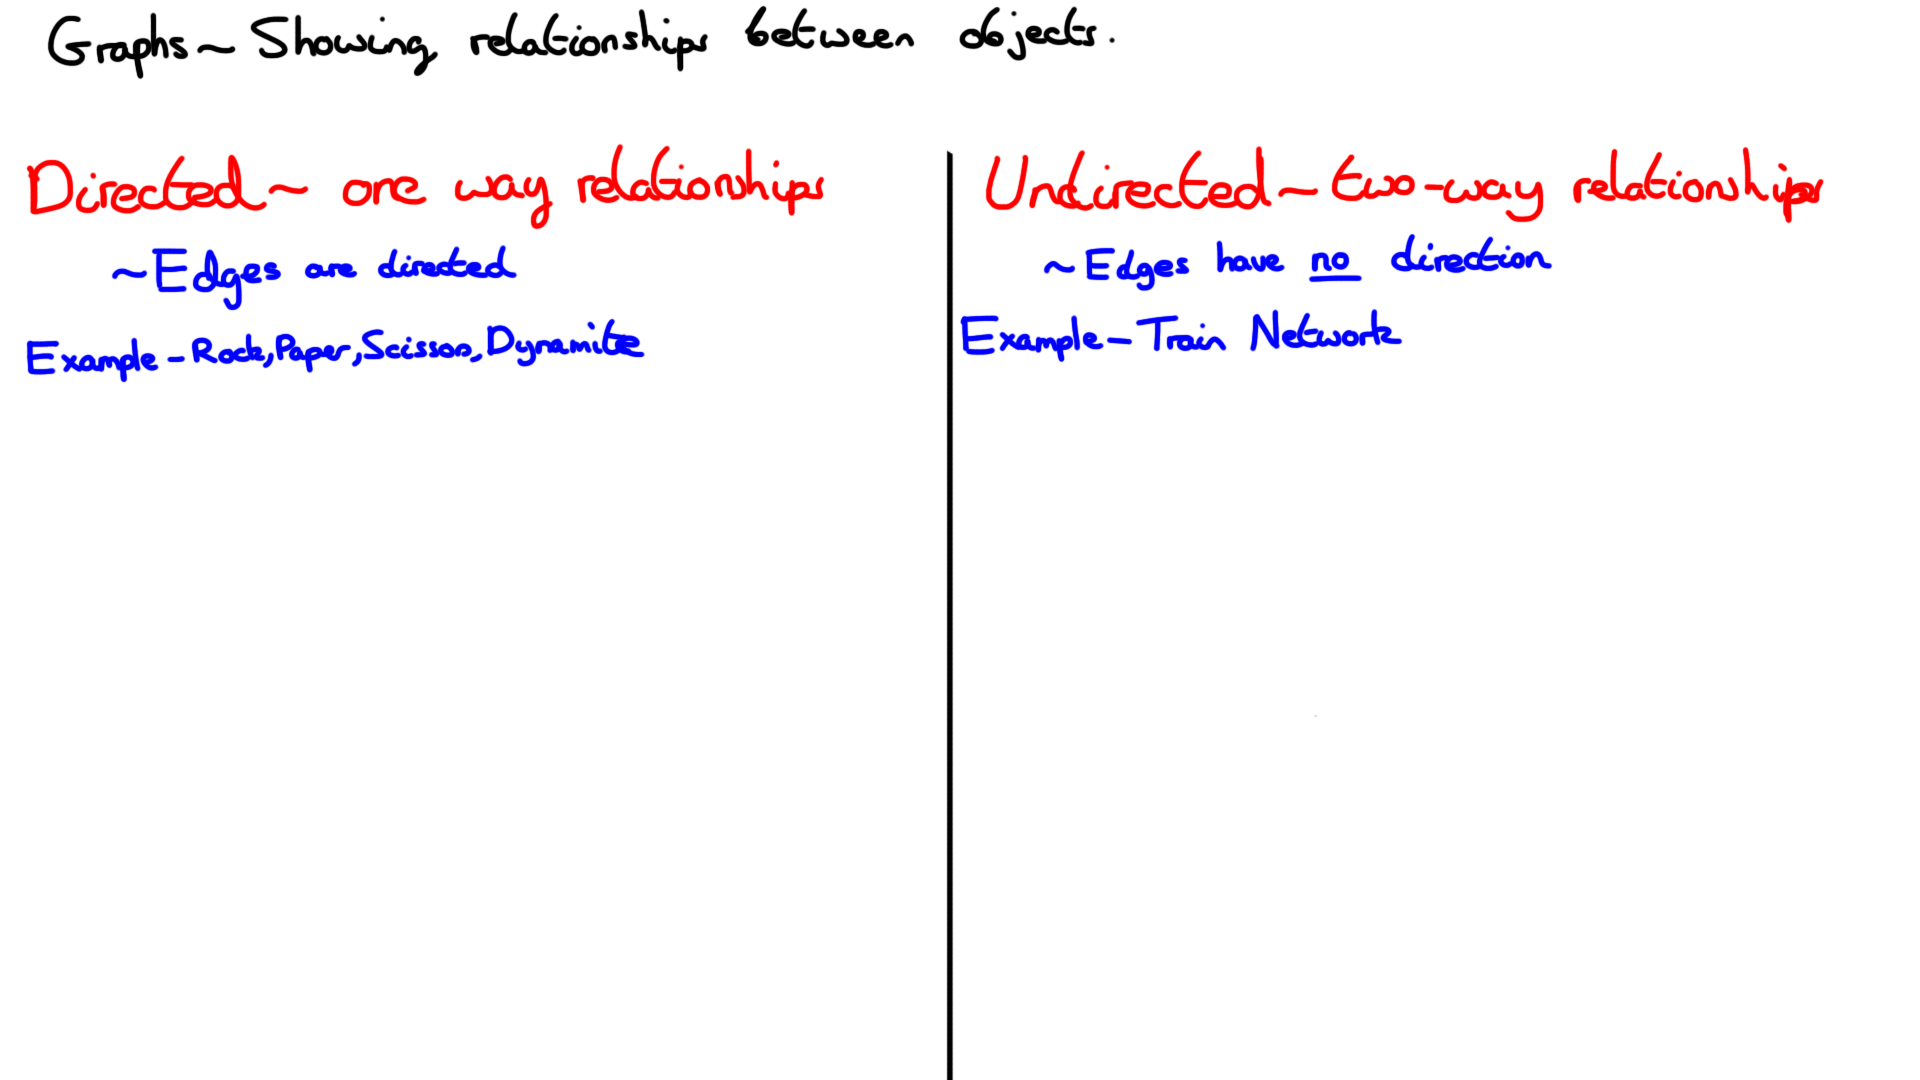 Graphs ~ Showing relationships between objects.
Directed ~ one way relationships
~ Edges are directed
Example - Rock, Paper, Scissors, Dynamite
Undirected ~ two-way relationships
~ Edges have no direction
Example - Train Network